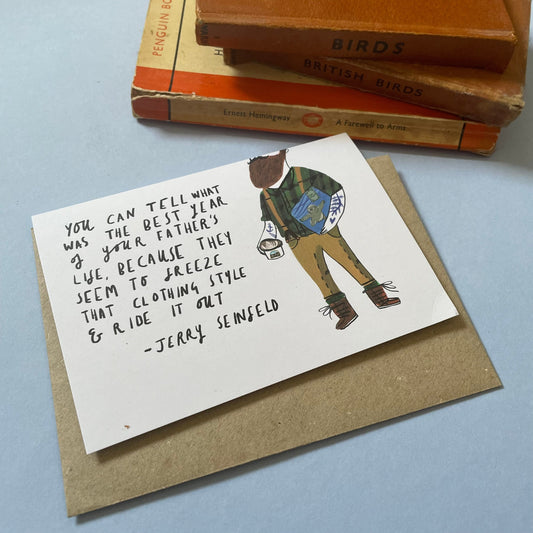 PENGUIN BO
BIRDS
BRITISH BIRDS
Ernest Hemingway A Farewell to Arms
YOU CAN TELL WHAT
WAS THE BEST YEAR
of YOUR FATHER'S
LIFE, BECAUSE THEY
SEEM TO FREEZE
THAT CLOTHING STYLE
& RIDE IT OUT
-JERRY SEINFELD